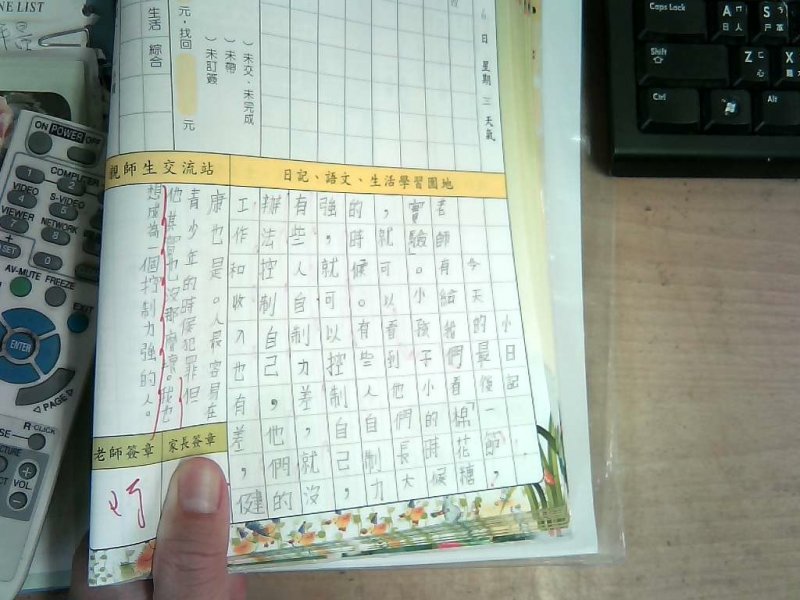 6日 星期三 天氣
)未交、未完成
)未帶
)未訂簽
元，找回 元
生活 綜合
日記、語文、生活學習園地
親師生交流站
小日記
今天的最後一節，
老師有給我們看「棉花糖
實驗」。小孩子小的時候
，就可以看到他們長大
的時候。有些人自制力
強，就可以控制自己，
有些人自制力差，就沒
辦法控制自己，他們的
工作和收入也有差，健
康也是。人很容易在
青少年的時候犯罪但
他其實也沒那麼壞。我也
想成為一個控制力強的人。
家長簽章
老師簽章
NE LIST
ON POWER OFF
COMPUTER
1
2
VIDEO
S-VIDEO
4
5
VIEWER
NETWORK
AV-MUTE
FREEZE
EXIT
ENTER
PAGE
R-CLICK
VOL
Caps Lock
Shift
Ctrl
Alt
A
S
Z
X